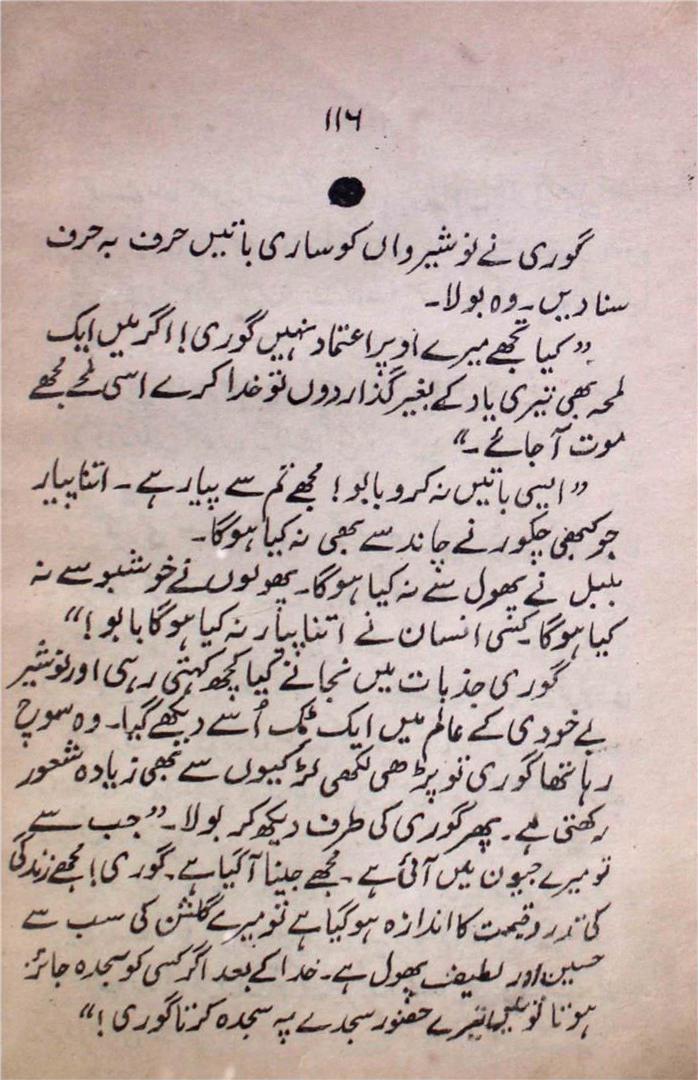 ۱۱۶
گوری نے نوشیرواں کو ساری باتیں حرف بہ حرف
سنا دیں۔ وہ بولا۔
”کیا تجھے میرے اوپر اعتماد نہیں گوری! اگر میں ایک
لمحہ بھی تیری یاد کے بغیر گذار دوں تو خدا کرے اسی لمحے مجھے
موت آ جائے۔“
”ایسی باتیں نہ کرو بابو! مجھے تم سے پیار ہے۔ اتنا پیار
جو کبھی چکور نے چاند سے بھی نہ کیا ہوگا۔
بلبل نے پھول سے نہ کیا ہوگا۔ پھولوں نے خوشبو سے نہ
کیا ہوگا۔ کسی انسان نے اتنا پیار نہ کیا ہوگا بابو!“
گوری جذبات میں نجانے کیا کچھ کہتی رہی اور نوشیر
بے خودی کے عالم میں ایک ٹک اُسے دیکھے گیا۔ وہ سوچ
رہا تھا گوری تو پڑھی لکھی لڑکیوں سے بھی زیادہ شعور
رکھتی ہے۔ پھر گوری کی طرف دیکھ کر بولا۔ ”جب سے
تو میرے جیون میں آئی ہے۔ مجھے جینا آ گیا ہے۔ گوری! مجھے زندگی
کی قدر و قیمت کا اندازہ ہو گیا ہے تو میرے گلشن کی سب سے
حسین اور لطیف پھول ہے۔ خدا کے بعد اگر کسی کو سجدہ جائز
ہوتا تو میں تیرے حضور سجدے پہ سجدہ کرتا گوری!“